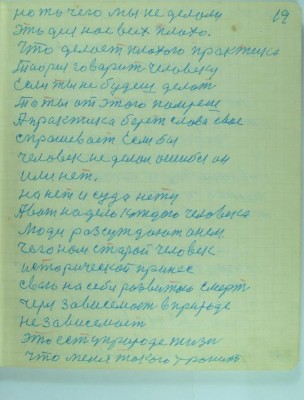 19
но то чего мы не делали
это для нас всех плохо.
Что делает плохого практика
Теория говорит человеку
Если ты не будеш делат
То ты от этого помреш
А практика берет слова свое
спрашивает Если бы
человек не делал ошибки он
или нет.
на нет и суда нету
А вот на дело каждого человека
люди разсуждают о нем
чего ном старой человек
исторической принес
свою на себя развитою смерт
Чем зависемост в природе
независемост
это ест природе жизни
что меня такого